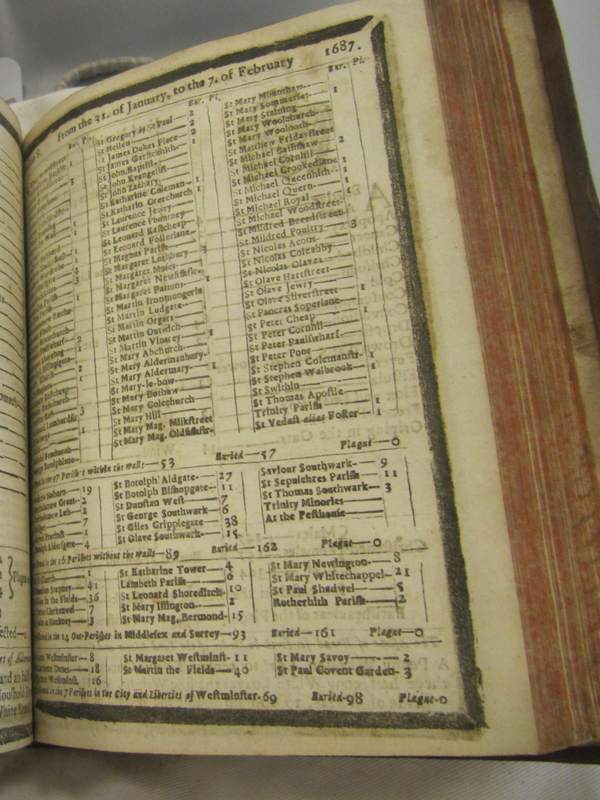 From the 31. of January, to the 7. of February 1687.
Bur. Pl.
St Gregory by St Paul 2
St Hellen 2
St James Dukes Place 2
St James Garlickhith 1
St John Baptist
St John Evangelist
St John Zachary
St Katharine Coleman 1
St Katharin Creechurch 1
St Laurence Jewry
St Laurence Pountney
St Leonard Eastcheap
St Leonard Fosterlane
St Magnus Parish
St Margaret Lothbury
St Margaret Moses
St Margaret Newfishstr
St Margaret Pattons 1
St Martin Ironmongerla
St Martin Ludgate
St Martin Orgars
St Martin Outwich
St Martin Vintrey 1
St Mary Abchurch
St Mary Aldermanbury
St Mary Aldermary 1
St Mary-le-bow
St Mary Bothaw
St Mary Colechurch
St Mary Hill
St Mary Mag. Milkstreet
St Mary Mag. Oldfishstr
Bur. Pl.
St Mary Mounthaw
St Mary Somerset 1
St Mary Staining
St Mary Woolchurch
St Mary Woolnoth
St Matthew Fridaystreet
St Michael Bassishaw 2
St Michael Cornhil
St Michael Crookedlane 1
St Michael Queenhith 1
St Michael Quern
St Michael Royal 1
St Michael Woodstreet
St Mildred Breadstreet
St Mildred Poultry 3
St Nicolas Acons
St Nicolas Coleabby
St Nicolas Olaves
St Olave Hartstreet
St Olave Jewry
St Olave Silverstreet 1
St Pancras Soperlane
St Peter Cheap 1
St Peter Cornhil
St Peter Paulswharf
St Peter Poor
St Stephen Colemanstr 1
St Stephen Walbrook 1
St Swithin
St Thomas Apostle
Trinity Parish 1
St Vedast alias Foster 1
in the 97 Parishes within the walls 53 Buried 57 Plague 0
Holborn 19
Great 2
Less 2
7
Precinct 1
Aldersgate 4
St Botolph Aldgate 27
St Botolph Bishopgate 11
St Dunstan West 7
St George Southwark 6
St Giles Cripplegate 38
St Olave Southwark 15
Saviour Southwark 9
St Sepulchres Parish 11
St Thomas Southwark 3
Trinity Minories
At the Pesthouse
in the 16 Parishes without the walls 89 Buried 162 Plague 0
Stepney 41
in the Fields 36
Clerkenwel 7
Hackney 3
St Katharine Tower 4
Lambeth Parish 6
St Leonard Shoreditch 10
St Mary Islington 2
St Mary Mag. Bermond 15
St Mary Newington 8
St Mary Whitechappel 21
St Paul Shadwel 5
Rotherhith Parish 2
in the 14 Out-Parishes in Middlesex and Surrey 93 Buried 161 Plague 0
Westminster 8
Danes 18
Westminst. 16
St Margaret Westminst 11
St Martin the Fields 40
St Mary Savoy 2
St Paul Covent Garden 3
in the 7 Parishes in the City and Liberties of Westminster 69 Buried 98 Plague 0